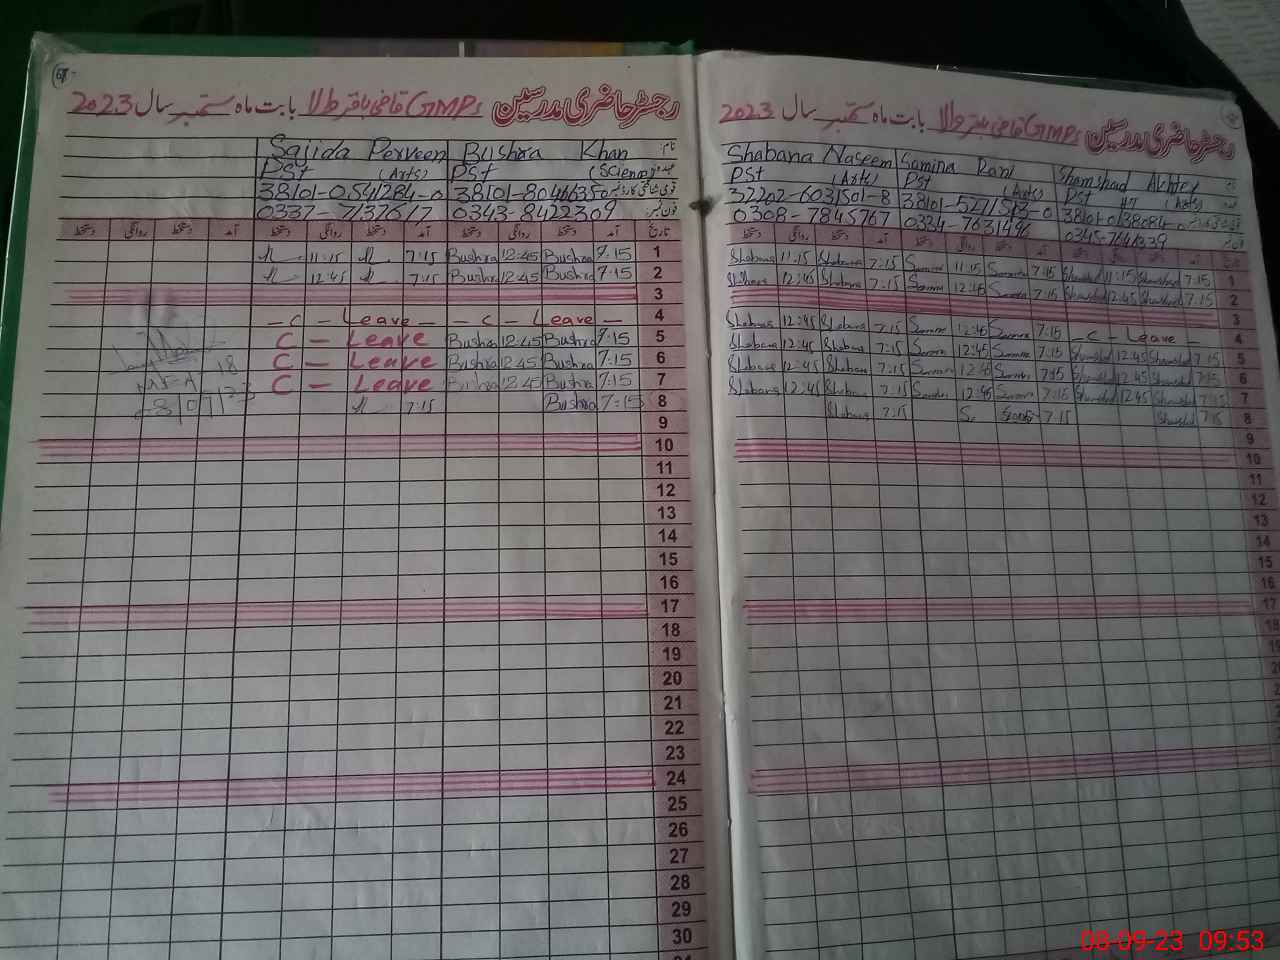 رجسٹر حاضری مدرسین GMPS قاضی باقر طلا بابت ماہ ستمبر سال 2023
نام: Bushra Khan Sajida Perveen
عہدہ: PSt (Science) PSt (Arts)
قومی شناختی کارڈ نمبر 38101-8046635-0 38101-0541284-0
فون نمبر: 0343-8422309 0337-7137617
تاریخ آمد دستخط روانگی دستخط آمد دستخط روانگی دستخط آمد دستخط روانگی دستخط
1 7:15 Bushra 12:45 Bushra 7:15 11:15
2 7:15 Bushra 12:45 Bushra 7:15 12:45
3
4 - C - Leave - - C - Leave -
5 7:15 Bushra 12:45 Bushra C - Leave
6 7:15 Bushra 12:45 Bushra C - Leave
7 7:15 Bushra 12:45 Bushra C - Leave
8 7:15 Bushra 7:15
9
10
11
12
13
14
15
16
17
18
19
20
21
22
23
24
25
26
27
28
29
30
رجسٹر حاضری مدرسین GMPS قاضی باقر طلا بابت ماہ ستمبر سال 2023
Shamshad Akhter Samina Rani Shabana Naseem
PSt HT (Arts) PSt (Arts) PSt (Arts)
32202-6031501-8
0345-7641339 0334-7631496 0308-7845767
تاریخ آمد دستخط روانگی دستخط آمد دستخط روانگی دستخط آمد دستخط روانگی دستخط
1 7:15 Shamshad 11:15 Shamshad 7:15 Samina 11:15 Samina 7:15 Shabana 11:15 Shabana
2 7:15 Shamshad 12:45 Shamshad 7:15 Samina 12:45 Samina 7:15 Shabana 12:45 Shabana
3
4 - C - Leave - 7:15 Samina 12:45 Samina 7:15 Shabana 12:45 Shabana
5 7:15 Shamshad 12:45 Shamshad 7:15 Samina 12:45 Samina 7:15 Shabana 12:45 Shabana
6 7:15 Shamshad 12:45 Shamshad 7:15 Samina 12:45 Samina 7:15 Shabana 12:45 Shabana
7 7:15 Shamshad 12:45 Shamshad 7:15 Samina 12:45 Samina 7:15 Shabana 12:45 Shabana
8 7:15 Shamshad 7:15 7:15 Shabana
9
10
11
12
13
14
15
16
17
18
08-09-23 09:53